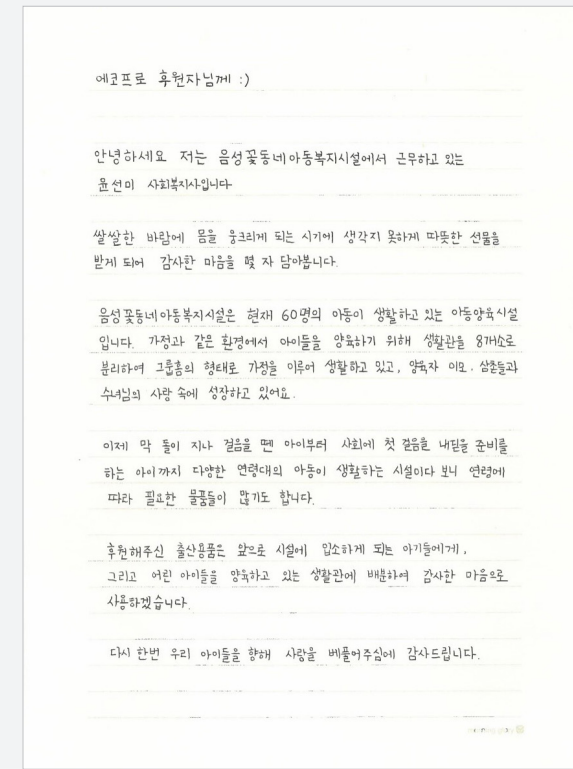 에코프로 후원자님께 :)
안녕하세요 저는 음성꽃동네아동복지시설에서 근무하고 있는
윤선미 사회복지사입니다
쌀쌀한 바람에 몸을 웅크리게 되는 시기에 생각지 못하게 따뜻한 선물을
받게 되어 감사한 마음을 몇 자 담아봅니다.
음성꽃동네아동복지시설은 현재 60명의 아동이 생활하고 있는 아동양육시설
입니다. 가정과 같은 환경에서 아이들을 양육하기 위해 생활관을 8개소로
분리하여 그룹홈의 형태로 가정을 이루어 생활하고 있고, 양육자 이모. 삼촌들과
수녀님의 사랑 속에 성장하고 있어요.
이제 막 돌이 지나 걸음을 뗀 아이부터 사회에 첫 걸음을 내딛을 준비를
하는 아이까지 다양한 연령대의 아동이 생활하는 시설이다 보니 연령에
따라 필요한 물품들이 많기도 합니다.
후원해주신 출산용품은 앞으로 시설에 입소하게 되는 아기들에게,
그리고 어린 아이들을 양육하고 있는 생활관에 배분하여 감사한 마음으로
사용하겠습니다.
다시 한번 우리 아이들을 향해 사랑을 베풀어주심에 감사드립니다.